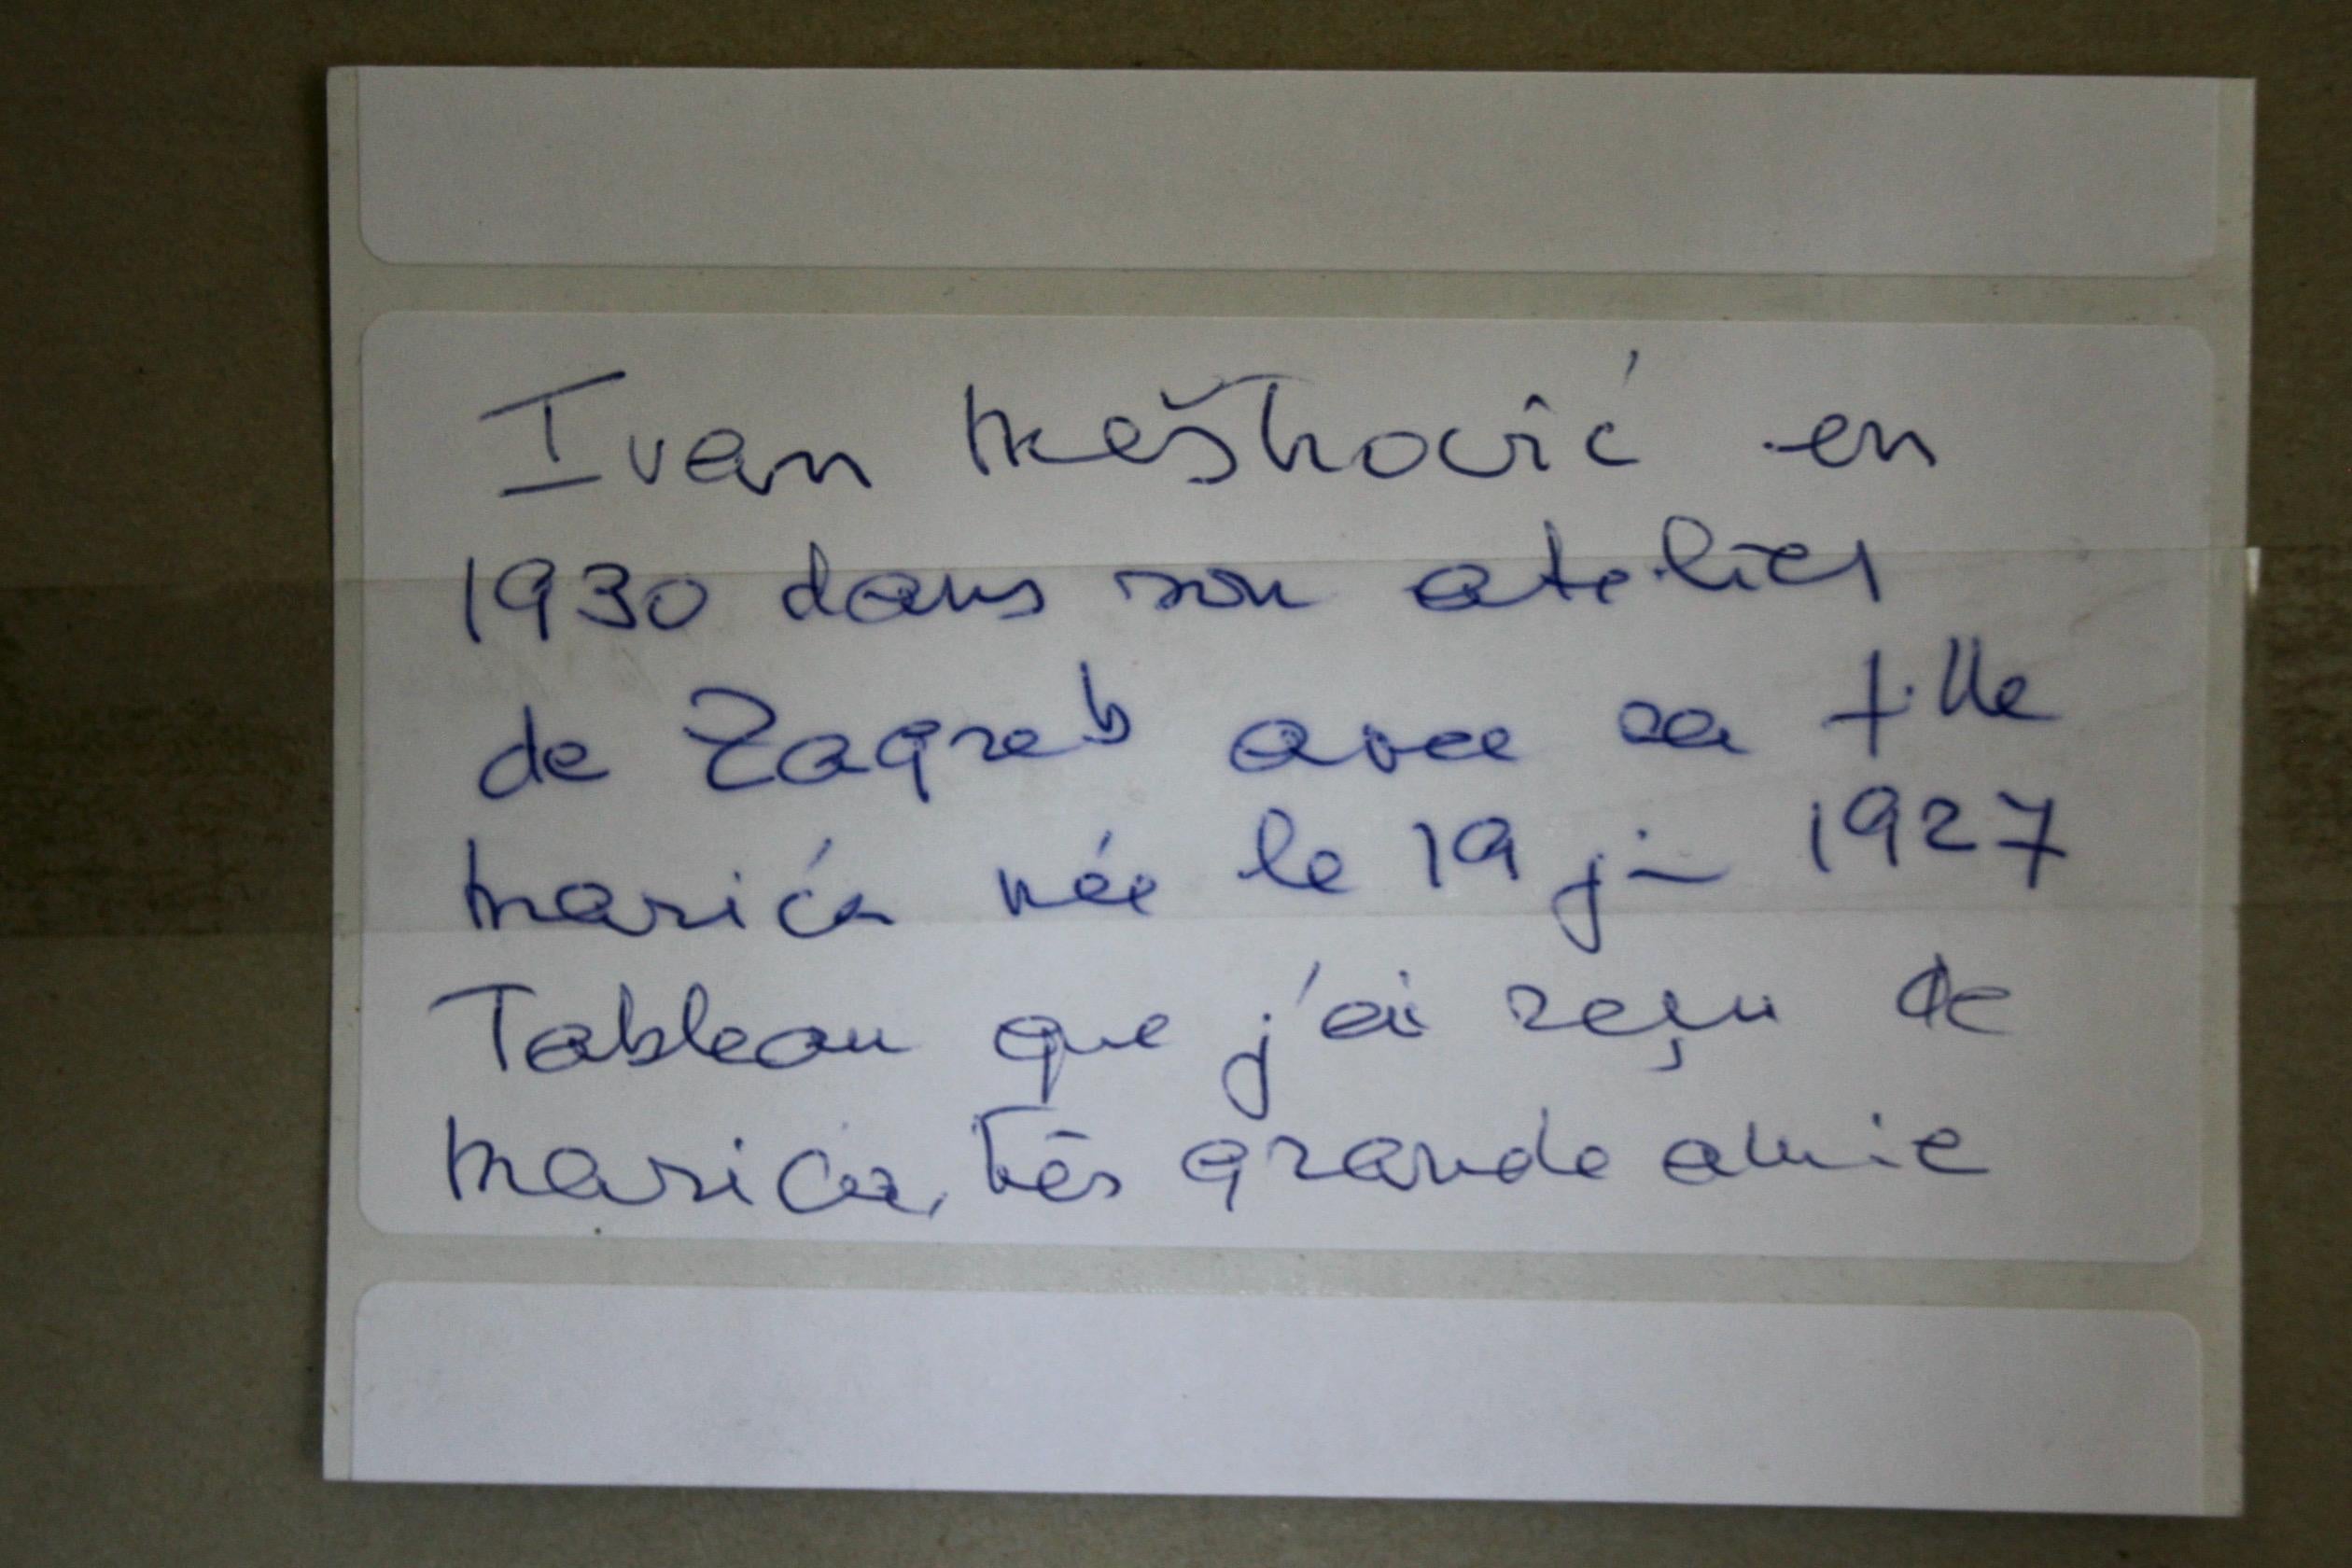 Ivan Meštrović en
1930 dans son atelier
de Zagreb avec sa fille
Marića née le 19 juin 1927
Tableau que j'ai reçu de
Marića, très grande amie